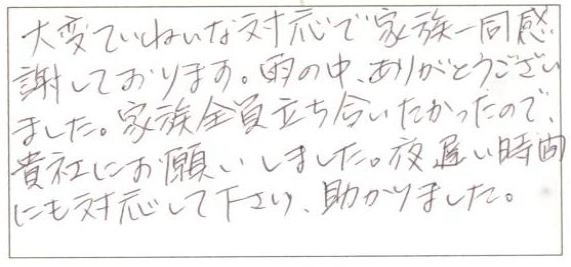 大変ていねいな対応で家族一同感
謝しております。雨の中、ありがとうござい
ました。家族全員立ち合いたかったので、
貴社にお願いしました。夜遅い時間
にも対応して下さり、助かりました。